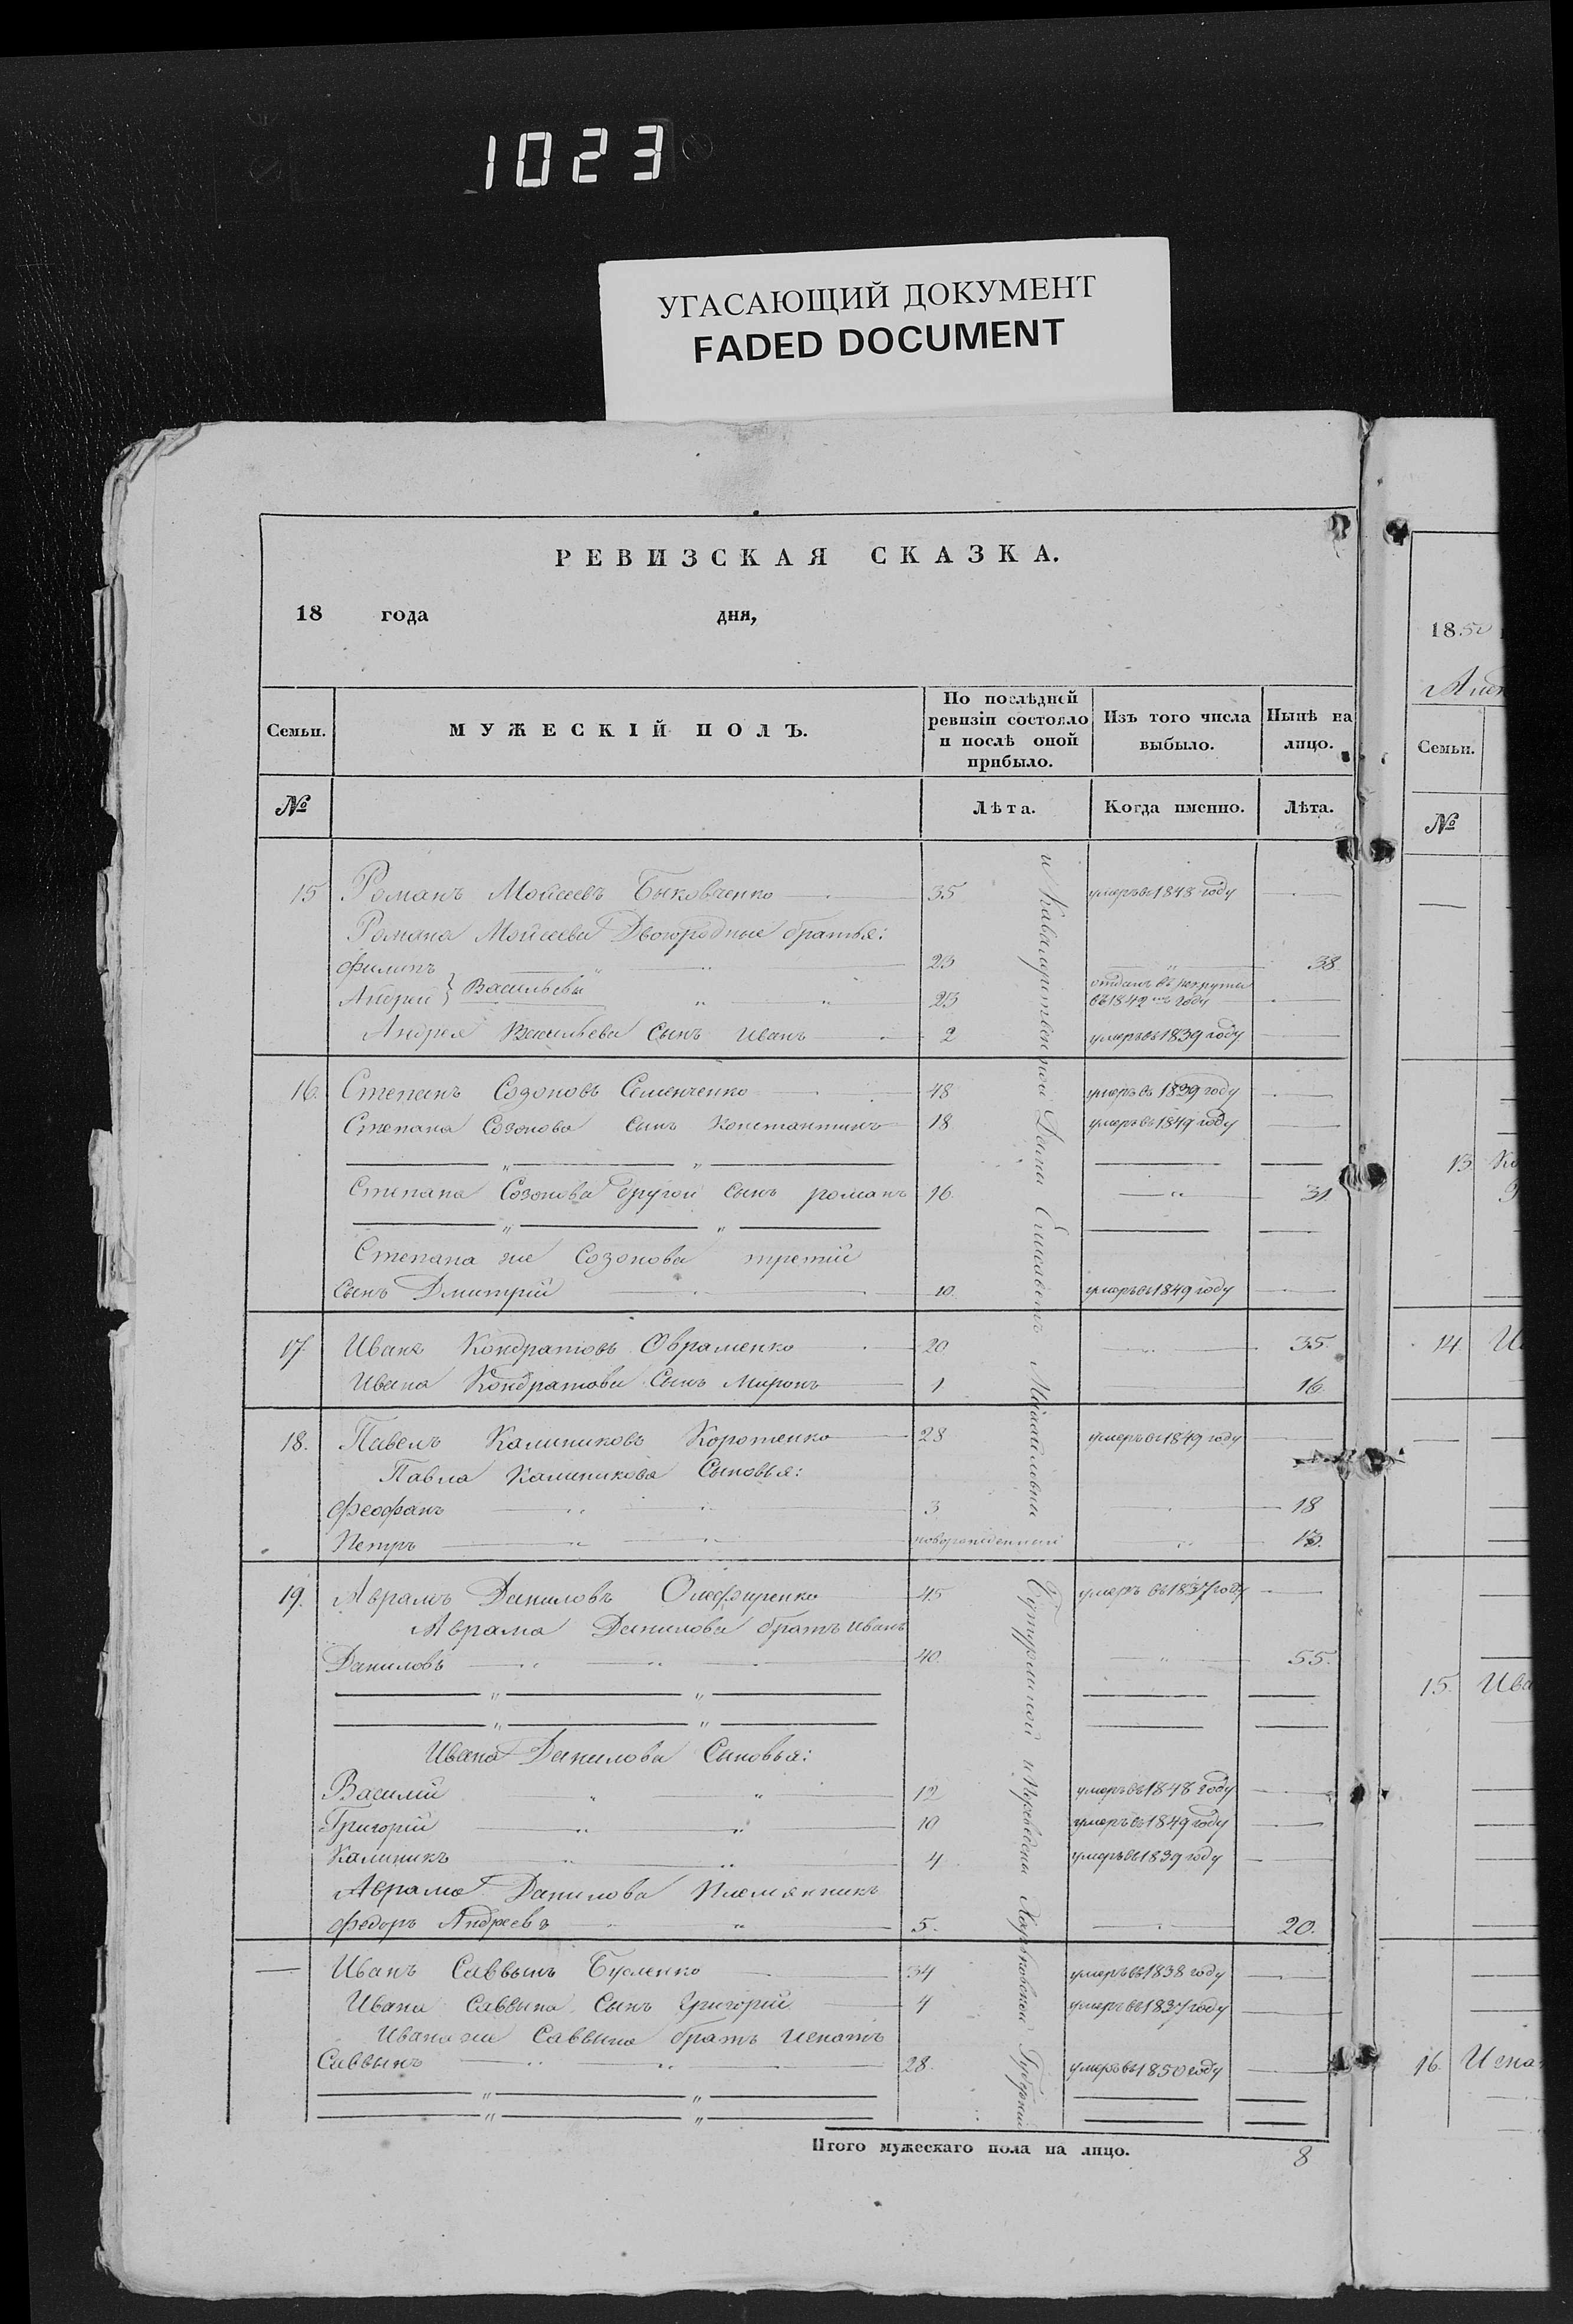 1023
УГАСАЮЩИЙ ДОКУМЕНТ
FADED DOCUMENT
РЕВИЗСКАЯ СКАЗКА.
18 года дня,
Семьи. МУЖЕСКІЙ ПОЛЪ. По послѣдней ревизіи состояло и послѣ оной прибыло. Изъ того числа выбыло. Нынѣ на лицо.
№ Лѣта. Когда именно. Лѣта.
15 Романъ Мойсеевъ Быковченко 35 умеръ въ 1848 году
Романа Мойсеева Двоюродные братья:
Филипъ 23 38
Андрей } Васильевы 23 отданъ въ рекруты въ 1842мъ году
Андрея Васильева Сынъ Иванъ 2 умеръ въ 1839 году
16. Степанъ Созоновъ Семенченко 48 умеръ въ 1839 году
Степана Созонова Сынъ Константинъ 18 умеръ въ 1849 году
Степана Созонова другой Сынъ романъ 16. 31
Степана же Созонова третій
Сынъ Дмитрій 10. умеръ въ 1849 году
17. Иванъ Кондратовъ Овраменко 20 35.
Ивана Кондратова Сынъ Миронъ 1 16.
18. Павелъ Калиниковъ Коротенко 28 умеръ въ 1849 году
Павла Калиникова Сыновья:
Феофанъ 3 18
Петръ новорожденный 13.
19. Аврамъ Даниловъ Олефиренко 45 умеръ въ 1837 году
Аврама Данилова братъ иванъ
Даниловъ 40. 55.
Ивана Данилова Сыновья:
Василій 12 умеръ въ 1848 году
Григорій 10 умеръ въ 1849 году
Калиникъ 4 умеръ въ 1839 году
Аврама Данилова Племянникъ
Федоръ Андреевъ 5. 20.
Иванъ Саввинъ Бусленко 34 умеръ въ 1838 году
Ивана Саввина Сынъ Григорій 4 умеръ въ 1837 году
Ивана же Саввина братъ Игнатъ
Саввинъ 28. умеръ въ 1850 году
Итого мужескаго пола на лицо. 8
и Кавалерственной Дамы Елисаветъ Михайловны Бутурлиной и Переведены Харьковской Губерніи
18.50
Семьи.
№
13
14. И
15. Ива
16. Игна